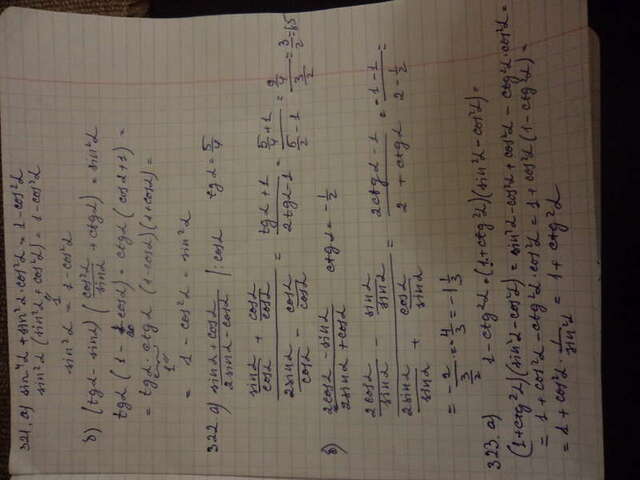 321. а) sin⁴α + sin²α·cos²α = 1-cos²α
sin²α (sin²α + cos²α) = 1-cos²α
1
sin²α = 1-cos²α
б) (tgα - sinα) (cos²α/sinα + ctgα) = sin²α
tgα (1 - cosα) = ctgα (cosα+1) =
= tgα·ctgα (1-cosα)(1+cosα) =
1
= 1 - cos²α = sin²α
322 а) (sinα + cosα)/(2sinα - cosα) |:cosα tgα = 5/4
(sinα/cosα + cosα/cosα)/(2sinα/cosα - cosα/cosα) = (tgα+1)/(2tgα-1) = (5/4+1)/(5/2-1) = (9/4)/(3/2) = 3/2 = 1,5
б) (2cosα - sinα)/(2sinα + cosα) ctgα = -1/2
(2cosα/sinα - sinα/sinα)/(2sinα/sinα + cosα/sinα) = (2ctgα-1)/(2+ctgα) = (-1-1)/(2-1/2) =
= -2/(3/2) = -4/3 = -1 1/3
323. а) 1-ctg²α = (1+ctg²α)(sin²α-cos²α) =
(1+ctg²α)(sin²α-cos²α) = sin²α-cos²α+cos²α-ctg²α·cos²α =
= 1+cos²α-ctg²α·cos²α = 1+cos²α(1-ctg²α) =
= 1+cos²α·1/sin²α = 1+ctg²α